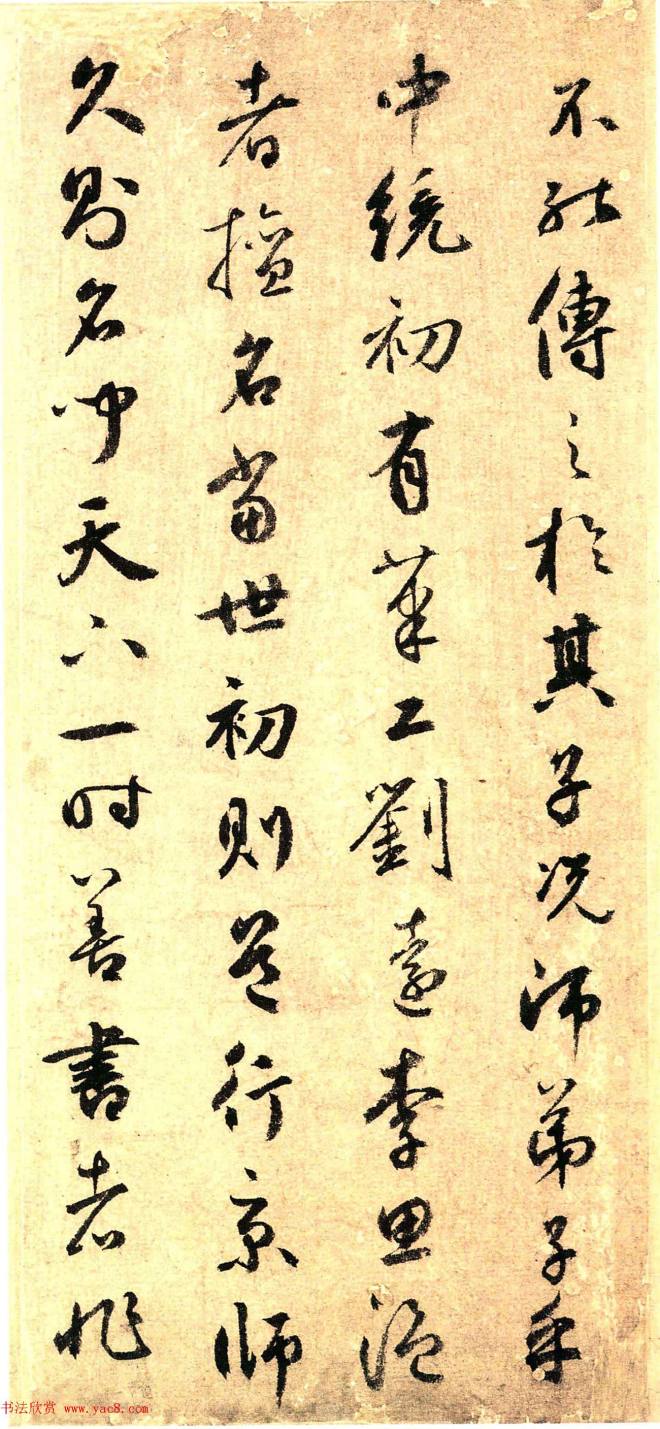 不能傳之於其子況師弟子乎
中統初有筆工劉遠李思溫
者擅名當世初則足行京師
久則名聞天下一時善書者非
书法欣赏 www.yac8.com